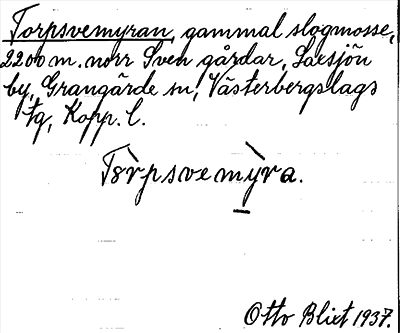 Torpsvemyran, gammal slogmosse,
2200 m. norr Sven gårdar, Laesjön
by, Grangärde sn, Västerbergslags
tg, Kopp. l.
Tòrpsvemỳra.
Otto Blixt 1937.